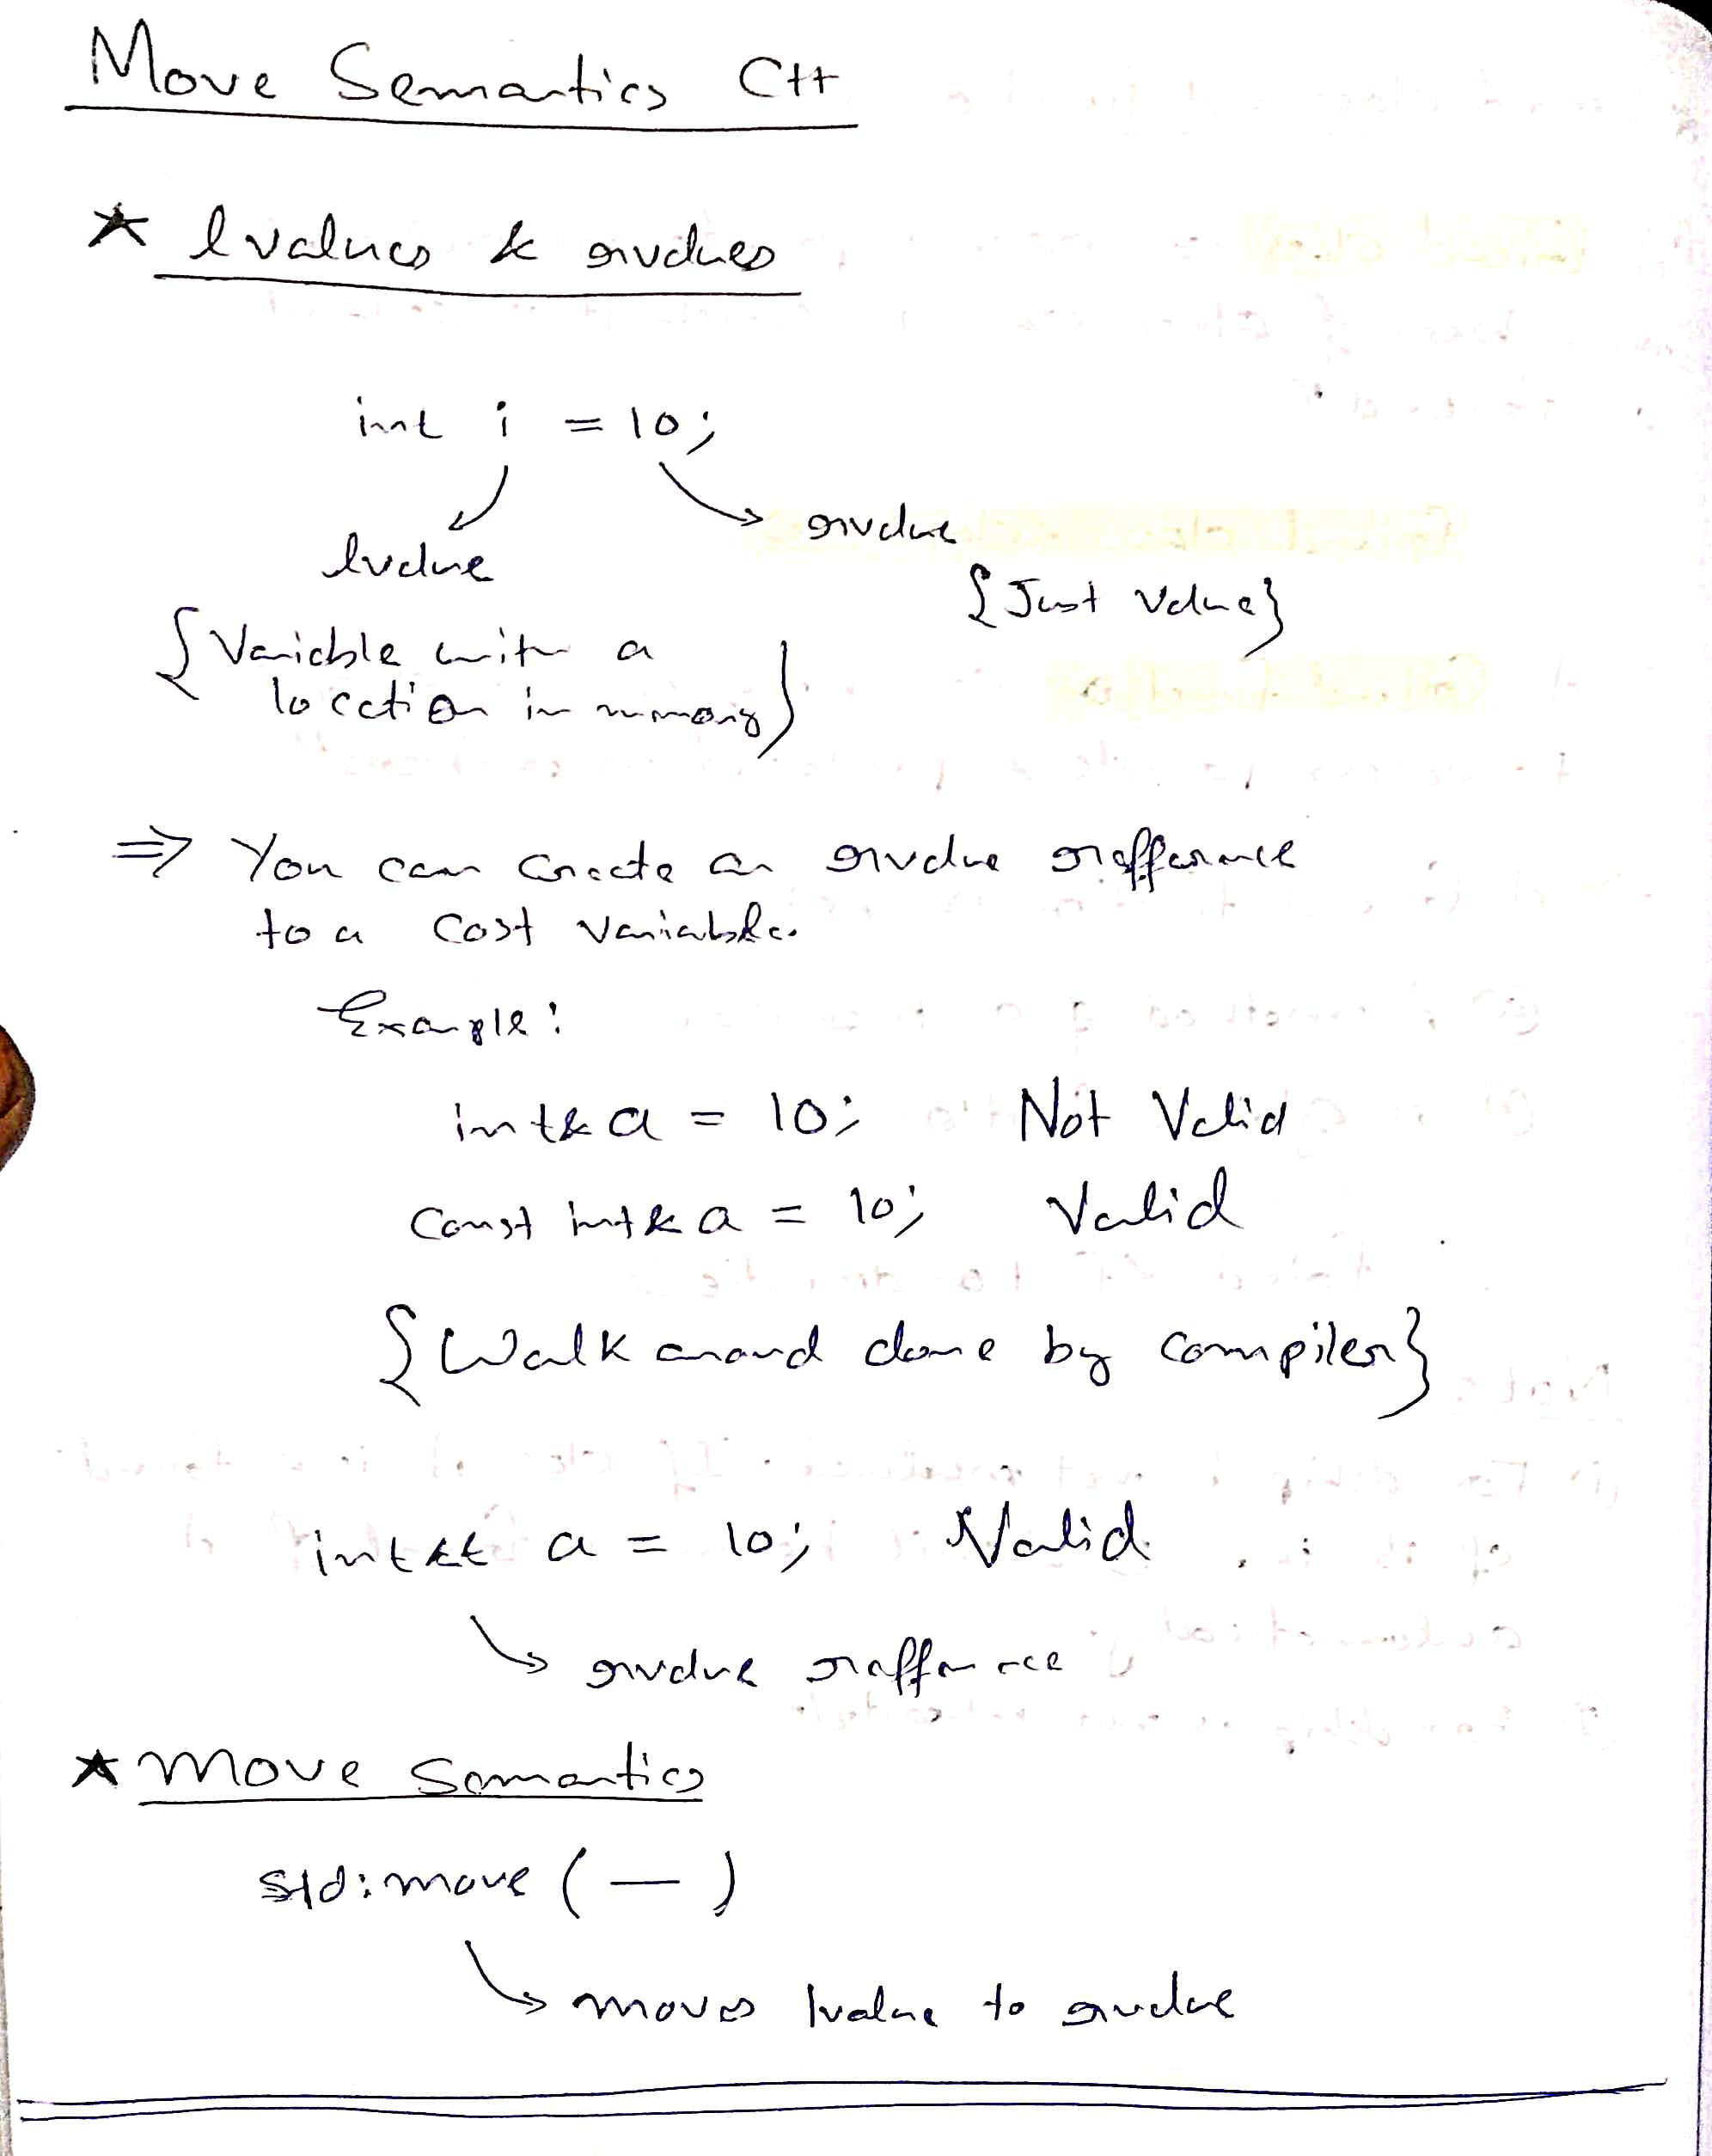 Move Semantics C++
* lvalues & rvalues
int i = 10;
rvalue
lvalue
{Just value}
{Variable with a
location in memory}
=> You can create an rvalue refference
to a cost variable.
Example:
int& a = 10; Not Valid
const int& a = 10; Valid
{Walk around done by compiler}
int&& a = 10; Valid
rvalue refference
* Move Semantics
std:move ( — )
moves lvalue to rvalue